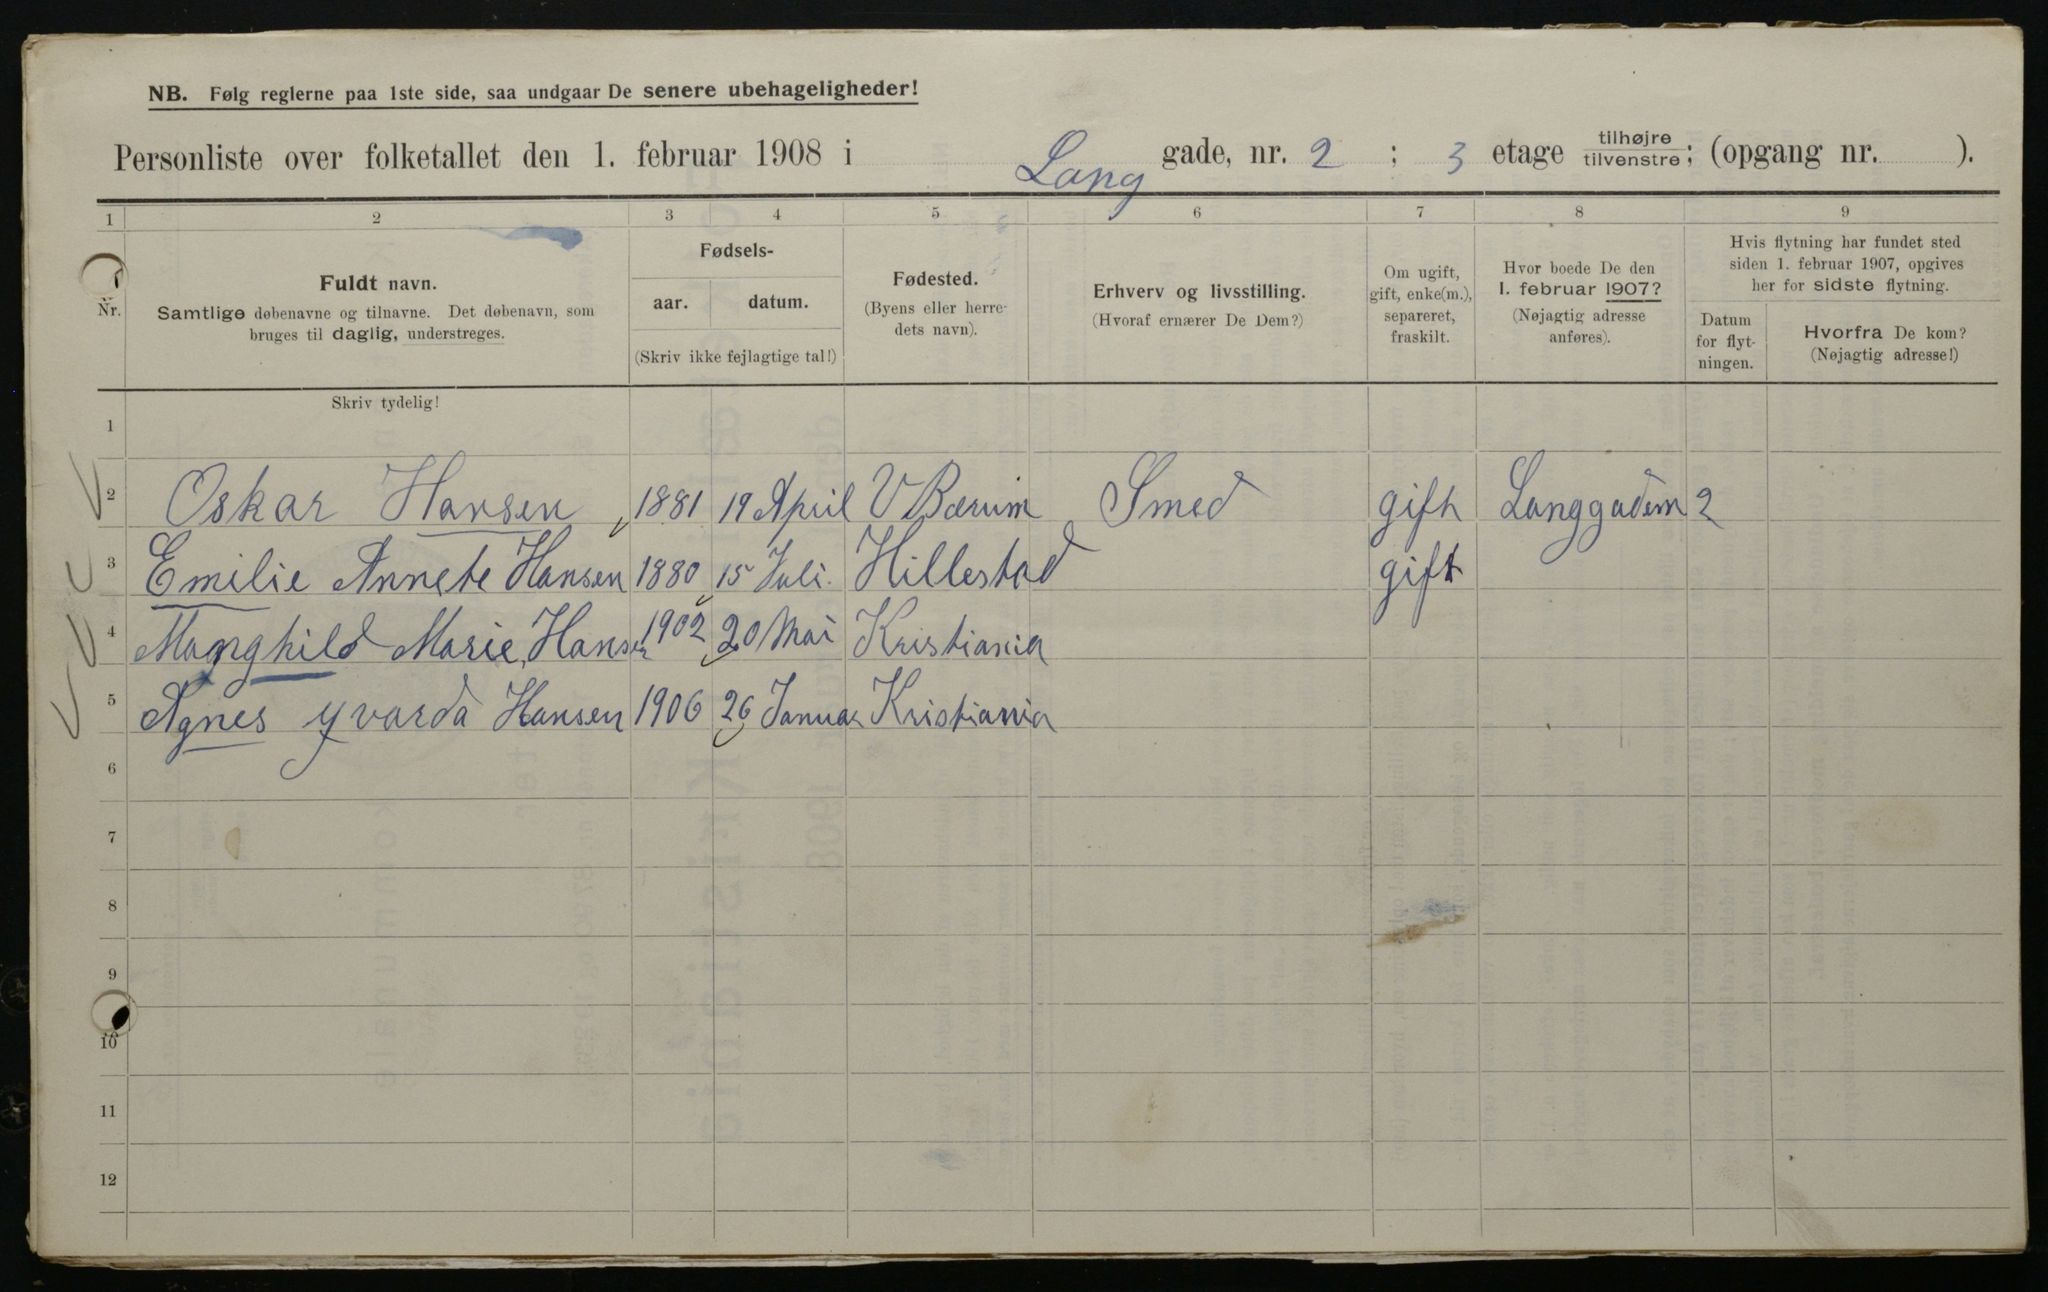 NB. Følg reglerne paa 1ste side, saa undgaar De senere ubehageligheder!
Personliste over folketallet den 1. februar 1908 i Lang gade, nr. 2 ; 3 etage tilhøjre tilvenstre; (opgang nr. ).
1 2 3 4 5 6 7 8 9
Nr.
Fuldt navn.
Samtlige døbenavne og tilnavne. Det døbenavn, som
bruges til daglig, understreges.
Fødsels-
aar. datum.
(Skriv ikke fejlagtige tal!)
Fødested.
(Byens eller herre-
dets navn).
Erhverv og livsstilling.
(Hvoraf ernærer De Dem?)
Om ugift,
gift, enke(m.),
separeret,
fraskilt.
Hvor boede De den
1. februar 1907?
(Nøjagtig adresse
anføres).
Hvis flytning har fundet sted
siden 1. februar 1907, opgives
her for sidste flytning.
Datum
for flyt-
ningen.
Hvorfra De kom?
(Nøjagtig adresse!)
Skriv tydelig!
1
2 Oskar Hansen 1881 19 April V Bærum Smed gift Langgaden 2
3 Emilie Annete Hansen 1880 15 Juli. Hillestad gift
4 Marie Hansen 1902 20 Mai Kristiania
5 Agnes yvarda Hansen 1906 26 Januar Kristiania
6
7
8
9
10
11
12